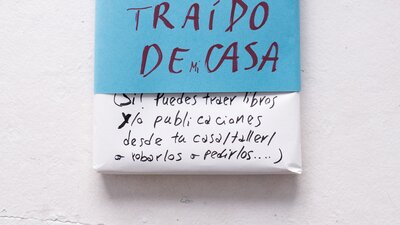 TRAÍDO
DE MI CASA
(Sí! Puedes traer libros
y/o publicaciones
desde tu casa/taller/
o robarlos o pedirlos....)